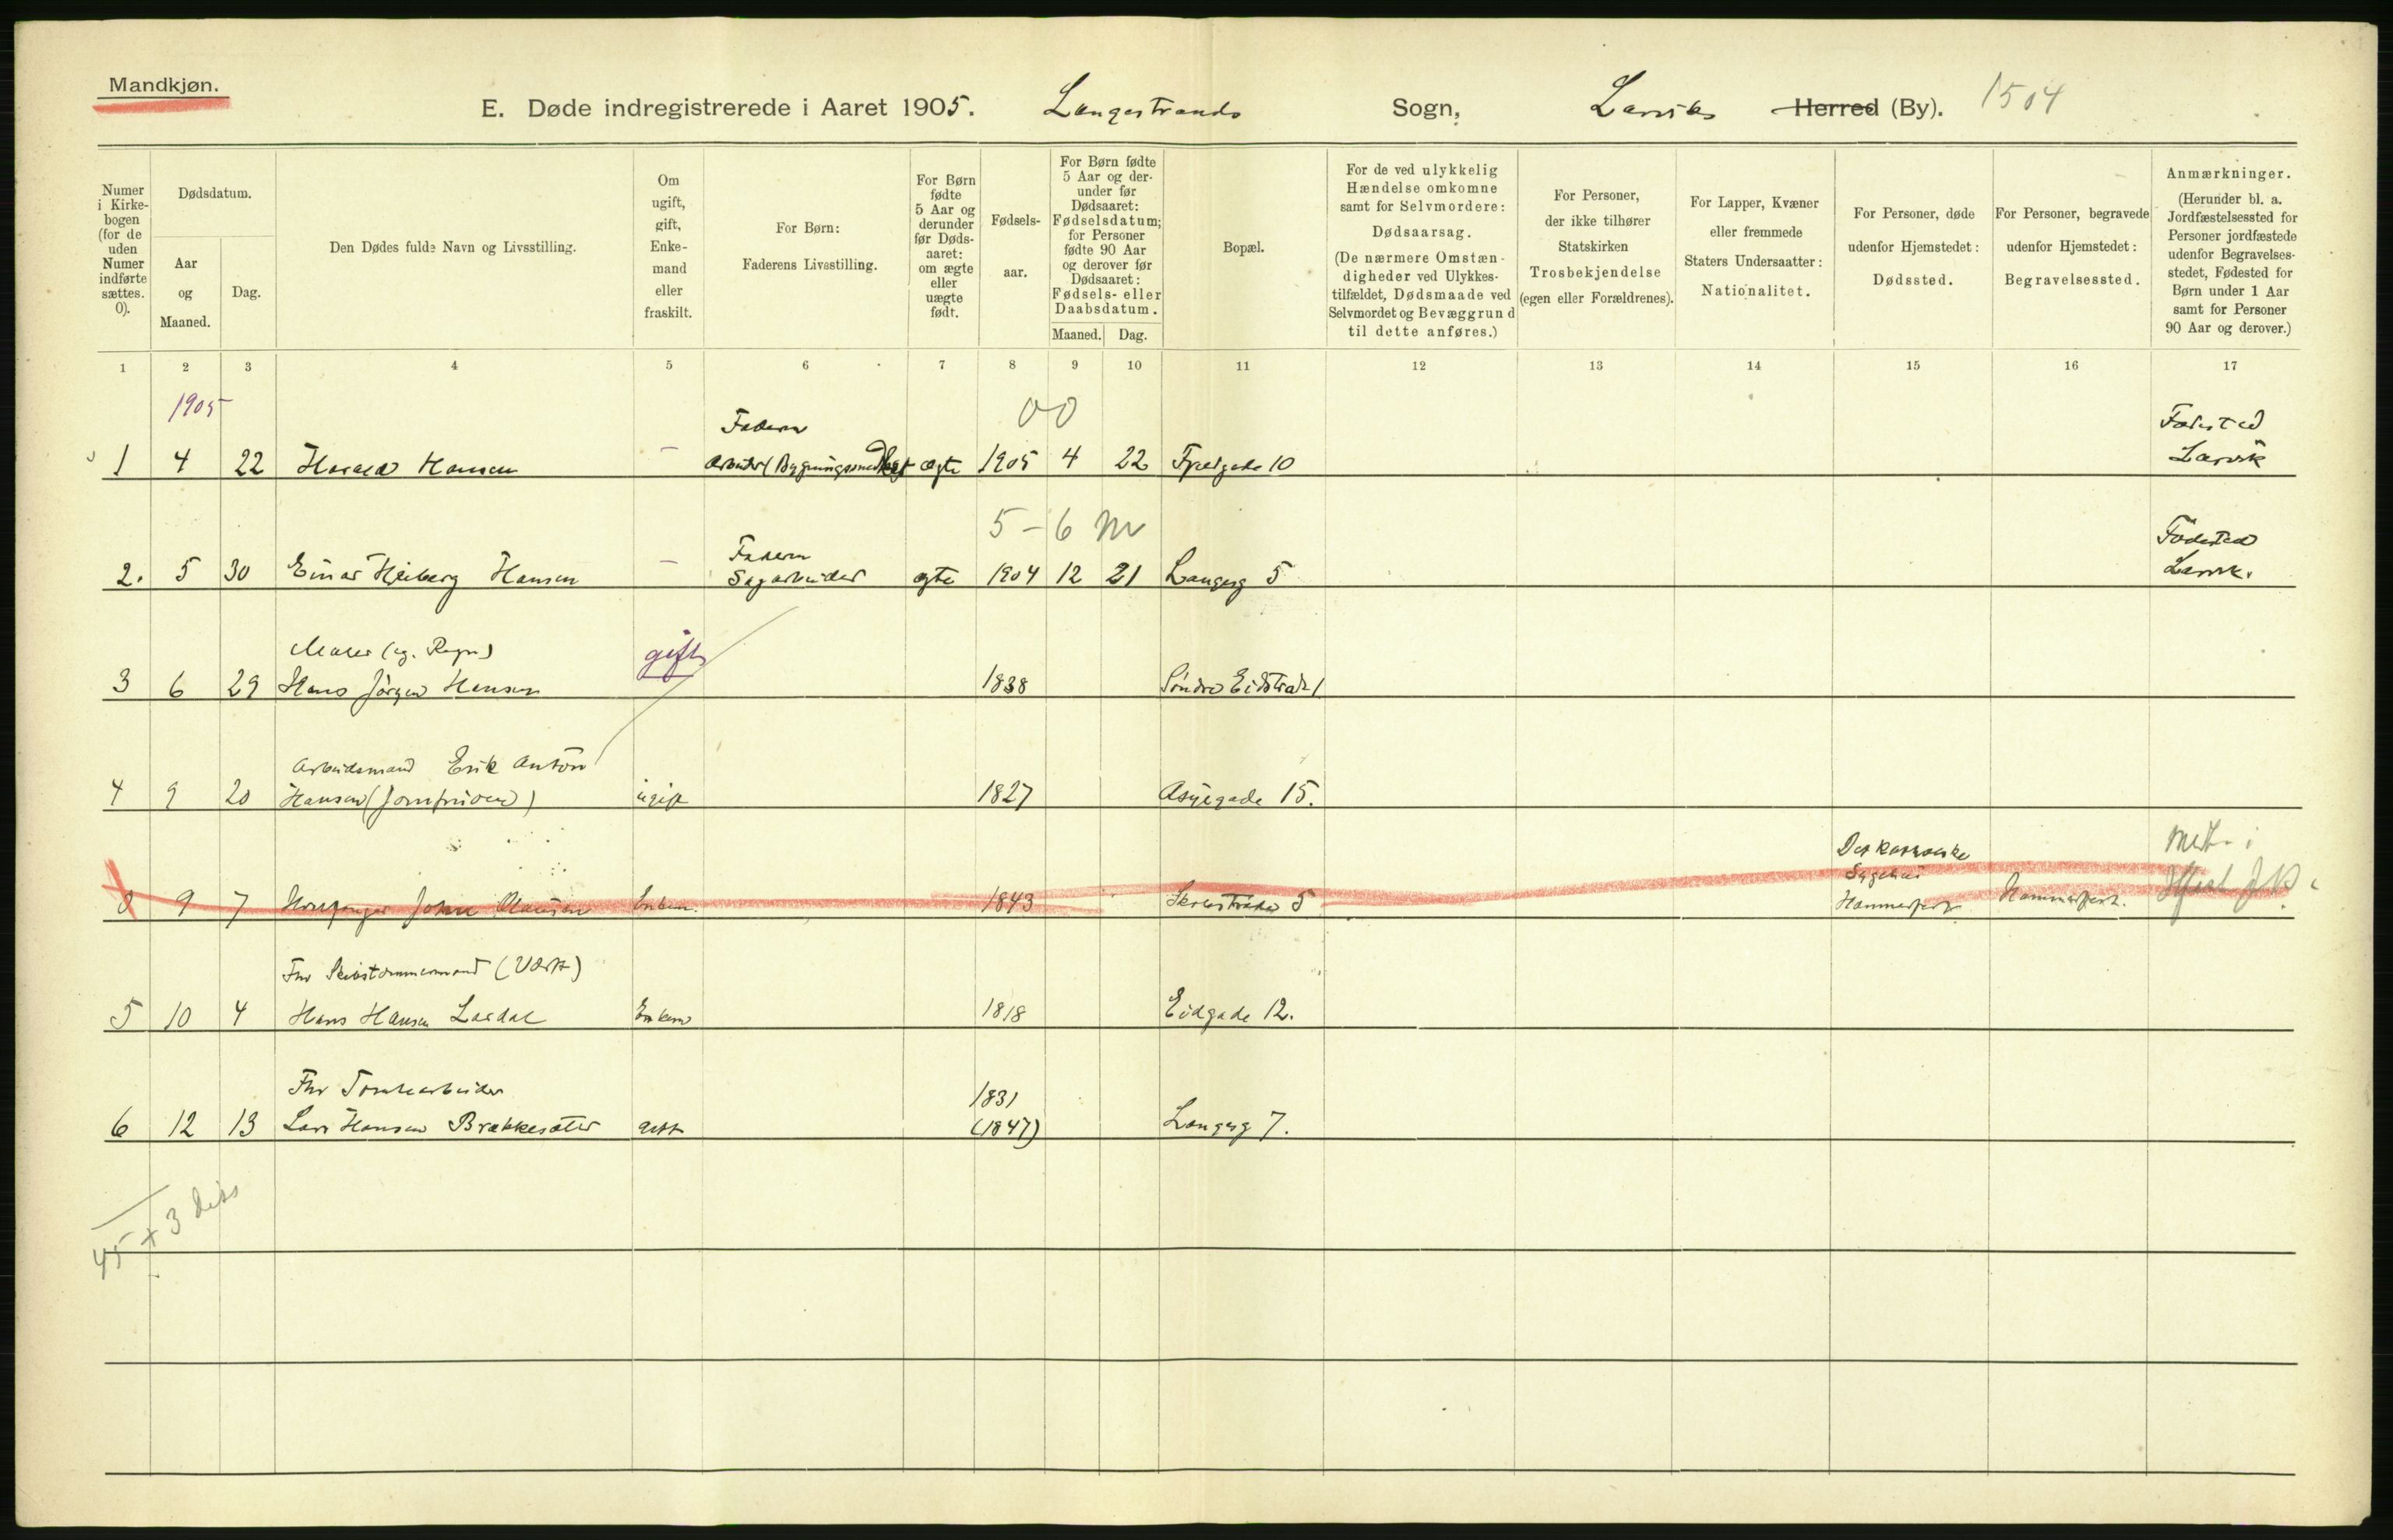 Mandkjøn.
E. Døde indregistrerede i Aaret 1905. Langestrands Sogn, Larviks Herred (By). 1504
Numer i Kirkebogen (for de uden Numer indførte sættes. 0).
Dødsdatum.
Aar og Maaned.
Dag.
Den Dødes fulde Navn og Livsstilling.
Om ugift, gift, Enkemand eller fraskilt.
For Børn: Faderens Livsstilling.
For Børn fødte 5 Aar og derunder før Dødsaaret: om ægte eller uægte født.
Fødselsaar.
For Børn fødte 5 Aar og derunder før Dødsaaret: Fødselsdatum; for Personer fødte 90 Aar og derover før Dødsaaret: Fødsels- eller Daabsdatum.
Maaned. Dag.
Bopæl.
For de ved ulykkelig Hændelse omkomne samt for Selvmordere: Dødsaarsag. (De nærmere Omstændigheder ved Ulykkestilfældet, Dødsmaade ved Selvmordet og Bevæggrund til dette anføres.)
For Personer, der ikke tilhører Statskirken Trosbekjendelse (egen eller Forældrenes).
For Lapper, Kvæner eller fremmede Staters Undersaatter: Nationalitet.
For Personer, døde udenfor Hjemstedet: Dødssted.
For Personer, begravede udenfor Hjemstedet: Begravelsessted.
Anmærkninger. (Herunder bl. a. Jordfæstelsessted for Personer jordfæstede udenfor Begravelsesstedet, Fødested for Børn under 1 Aar samt for Personer 90 Aar og derover.)
1 2 3 4 5 6 7 8 9 10 11 12 13 14 15 16 17
1905 00
Fadern Fødested
1 4 22 Harald Hansen - Arbeider ægte 1905 4 22 10 Larvik
5-6 M
Fadern Fødested
2. 5 30 Einar Heiberg Hansen - Sagarbeider ægte 1904 12 21 Langesg 5 Larvik.
gift
3 6 29 Hans Jörgen Hansen 1838 Söndre 1
Arbeidsmand Erik Anton
4 9 20 Hansen ugift 1827 15.
Sygehus
9 7 John Enkem. 1843 5 Hammerfest Hammerfest.
Fhv
5 10 4 Hans Hansen Lardal Enkem 1818 Eidgade 12.
Fhv Tomtearbeider 1831
6 12 13 Lars Hansen Brækkesæter gift (1847) Langesg 7.
45 + 3